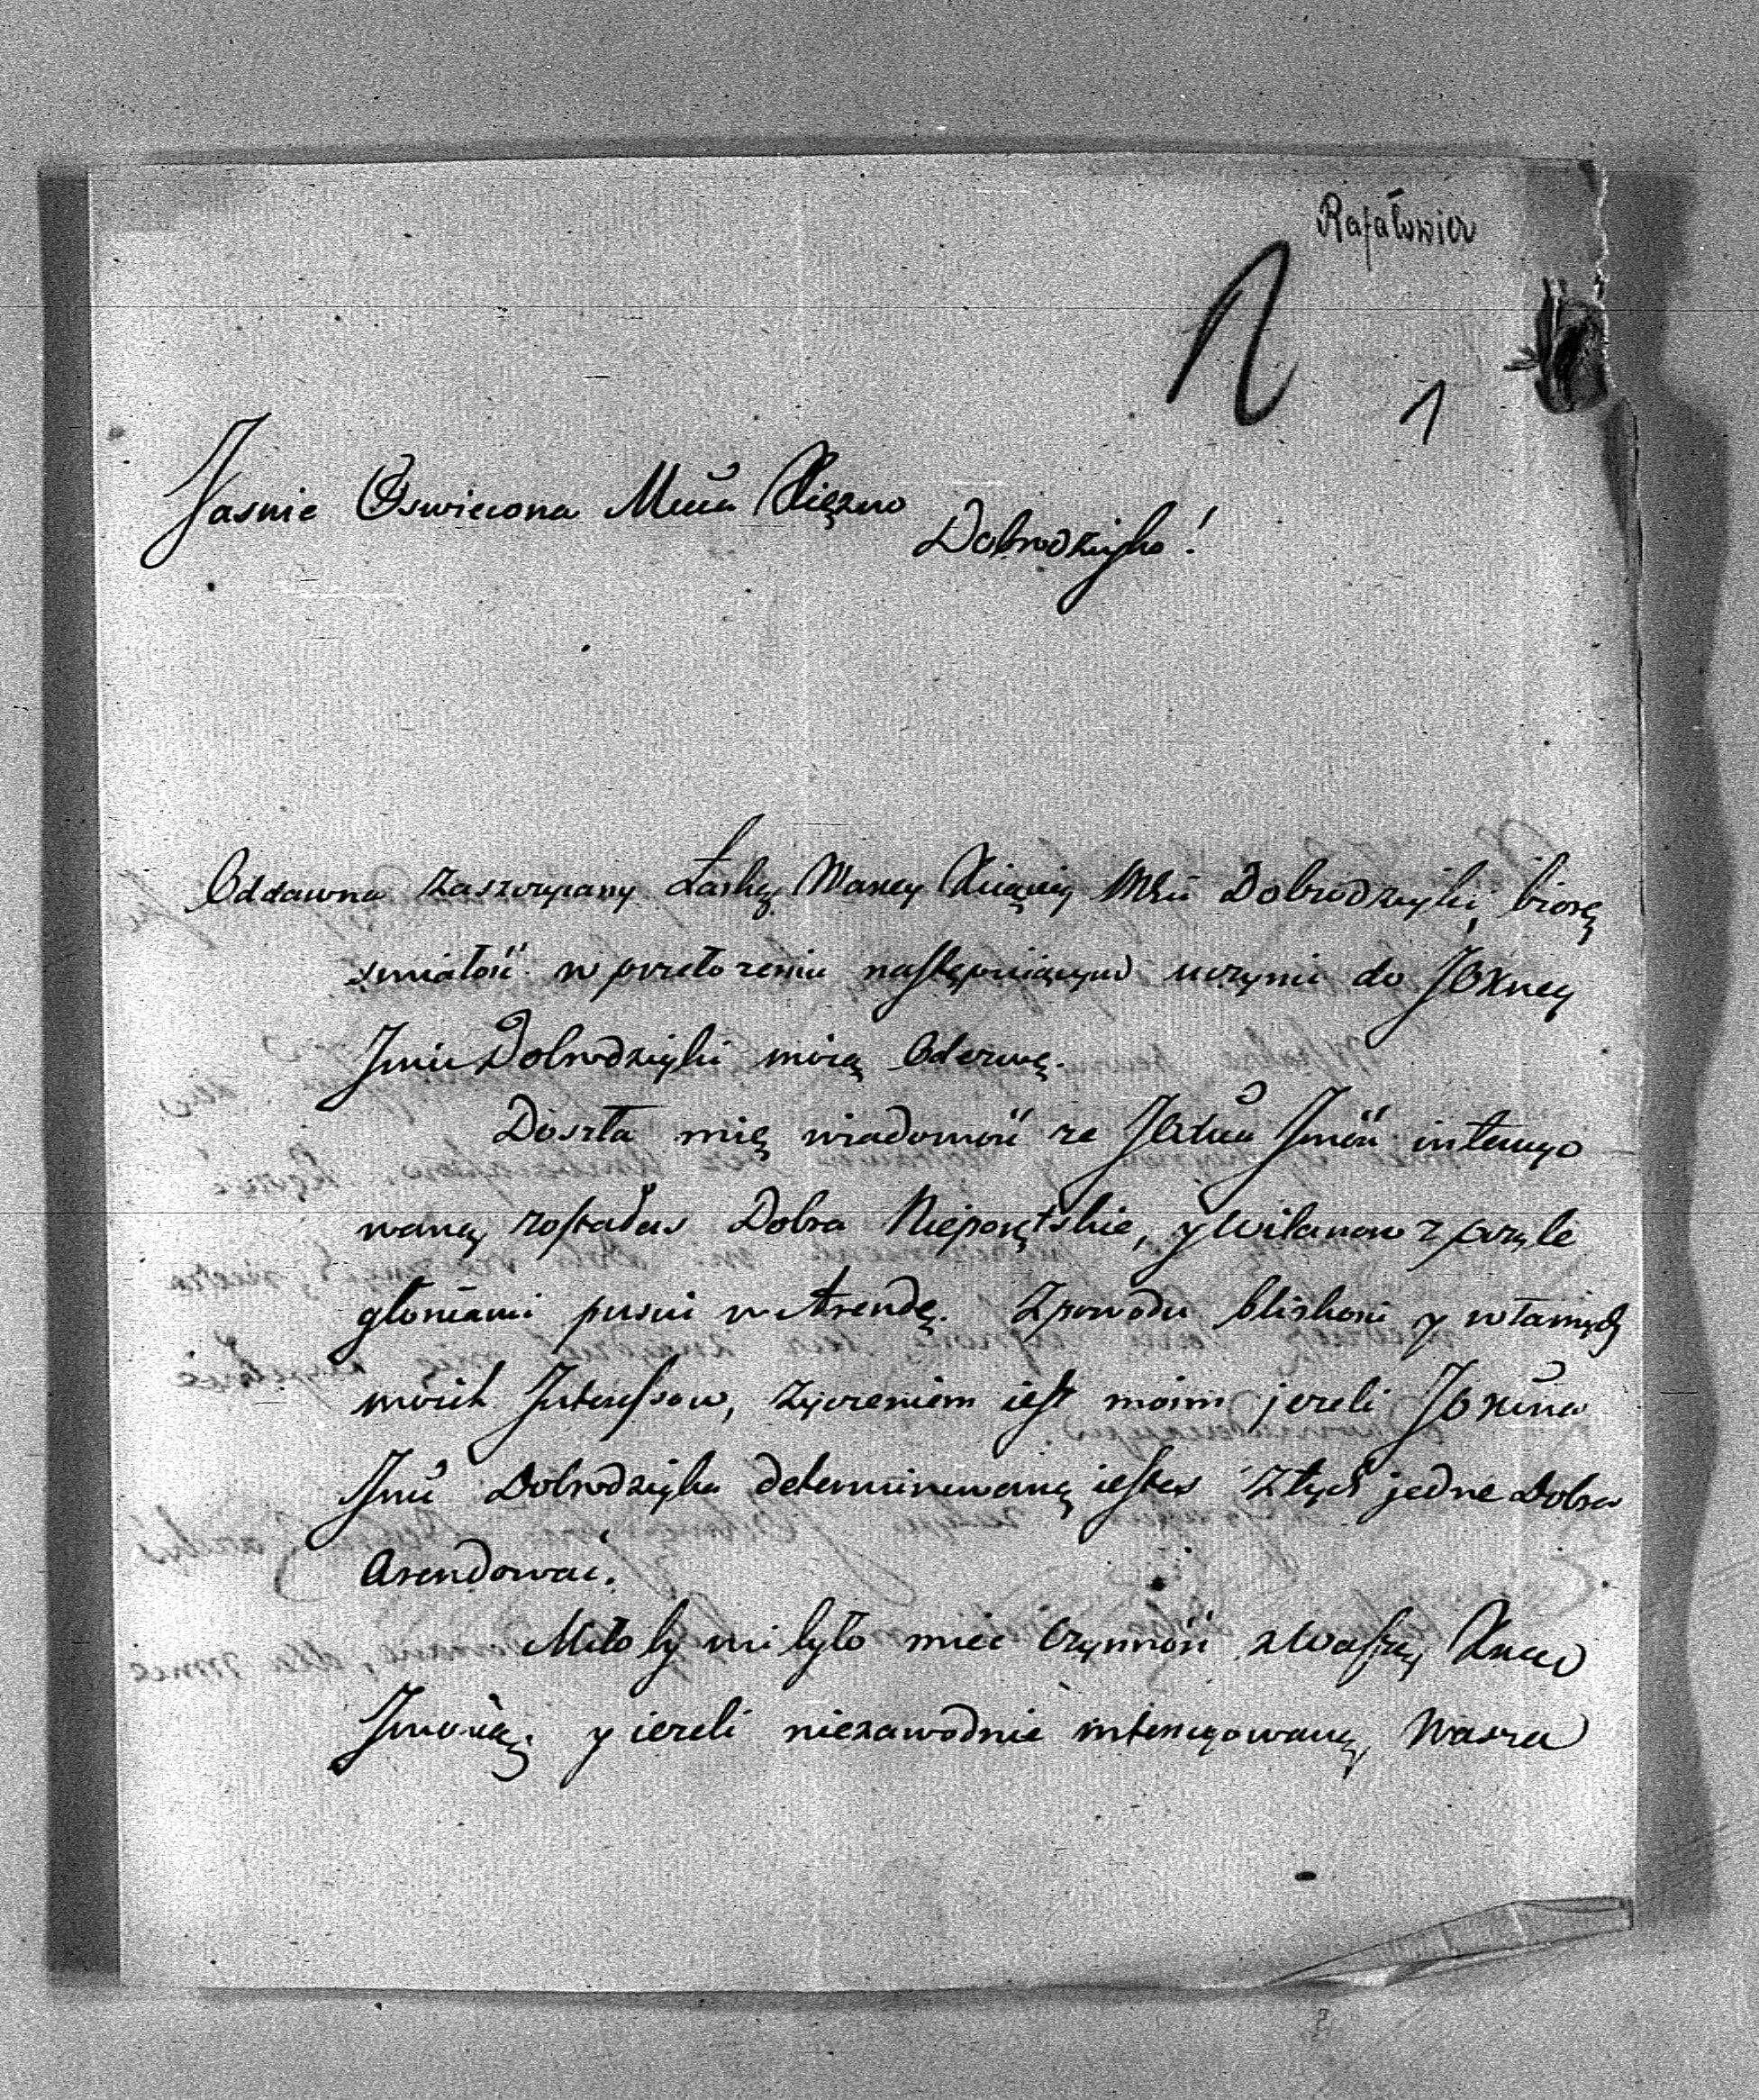 Rafałowicz
1
Jasnie Oswiecona Mcia Xięzno
Dobrodziyko!
Oddawna zaszczycany Łaską Waszey Xiążęcey Mści Dobrodziyki, biorę
smiałość w przełozeniu następuiącym uczynic do JOXney
Jmci Dobrodzieyki moią Odezwę.
Doszła mię wiadomość ze JOXna Jmość intencyo
waną zostałas Dobra Nieporętskie, y Wilanow z przyle
głosciami puscic w Arendę. Z powodu bliskosci y
moich Interessow, zyczeniem iest moim jezeli JOXna
Jmć Dobrodziyka determinowaną iestes z tych jedne Dobra
Arendowac.
Miło by mi było miec Czynność z Waszą Xcią
Jmoscią; y iezeli niezawodnie intencyowaną, Wasza